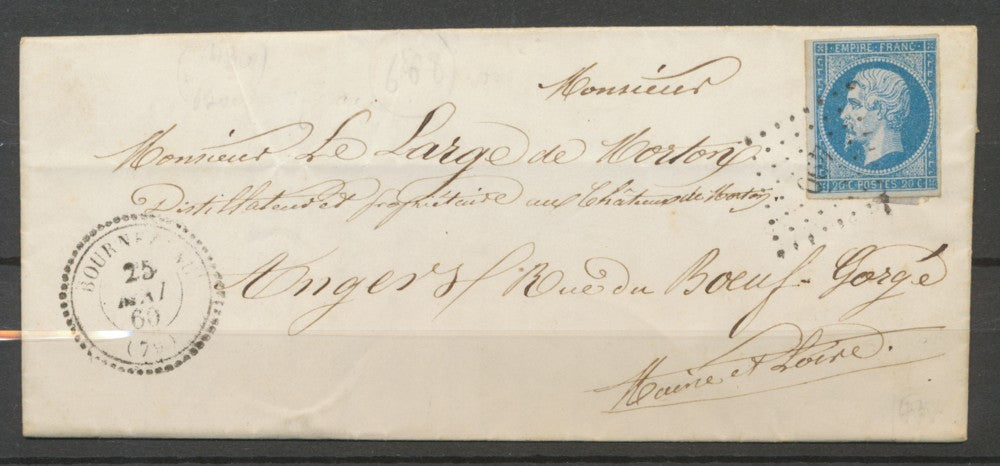 688
Monsieur
Monsieur Le Large de Morton
Distillateur et propriétaire au Château de Morton
Angers Rue du Boeuf-Gorgé
Maine et Loire.
EMPIRE FRANC
20 C POSTES 20 C
25
MAI
60
(79)